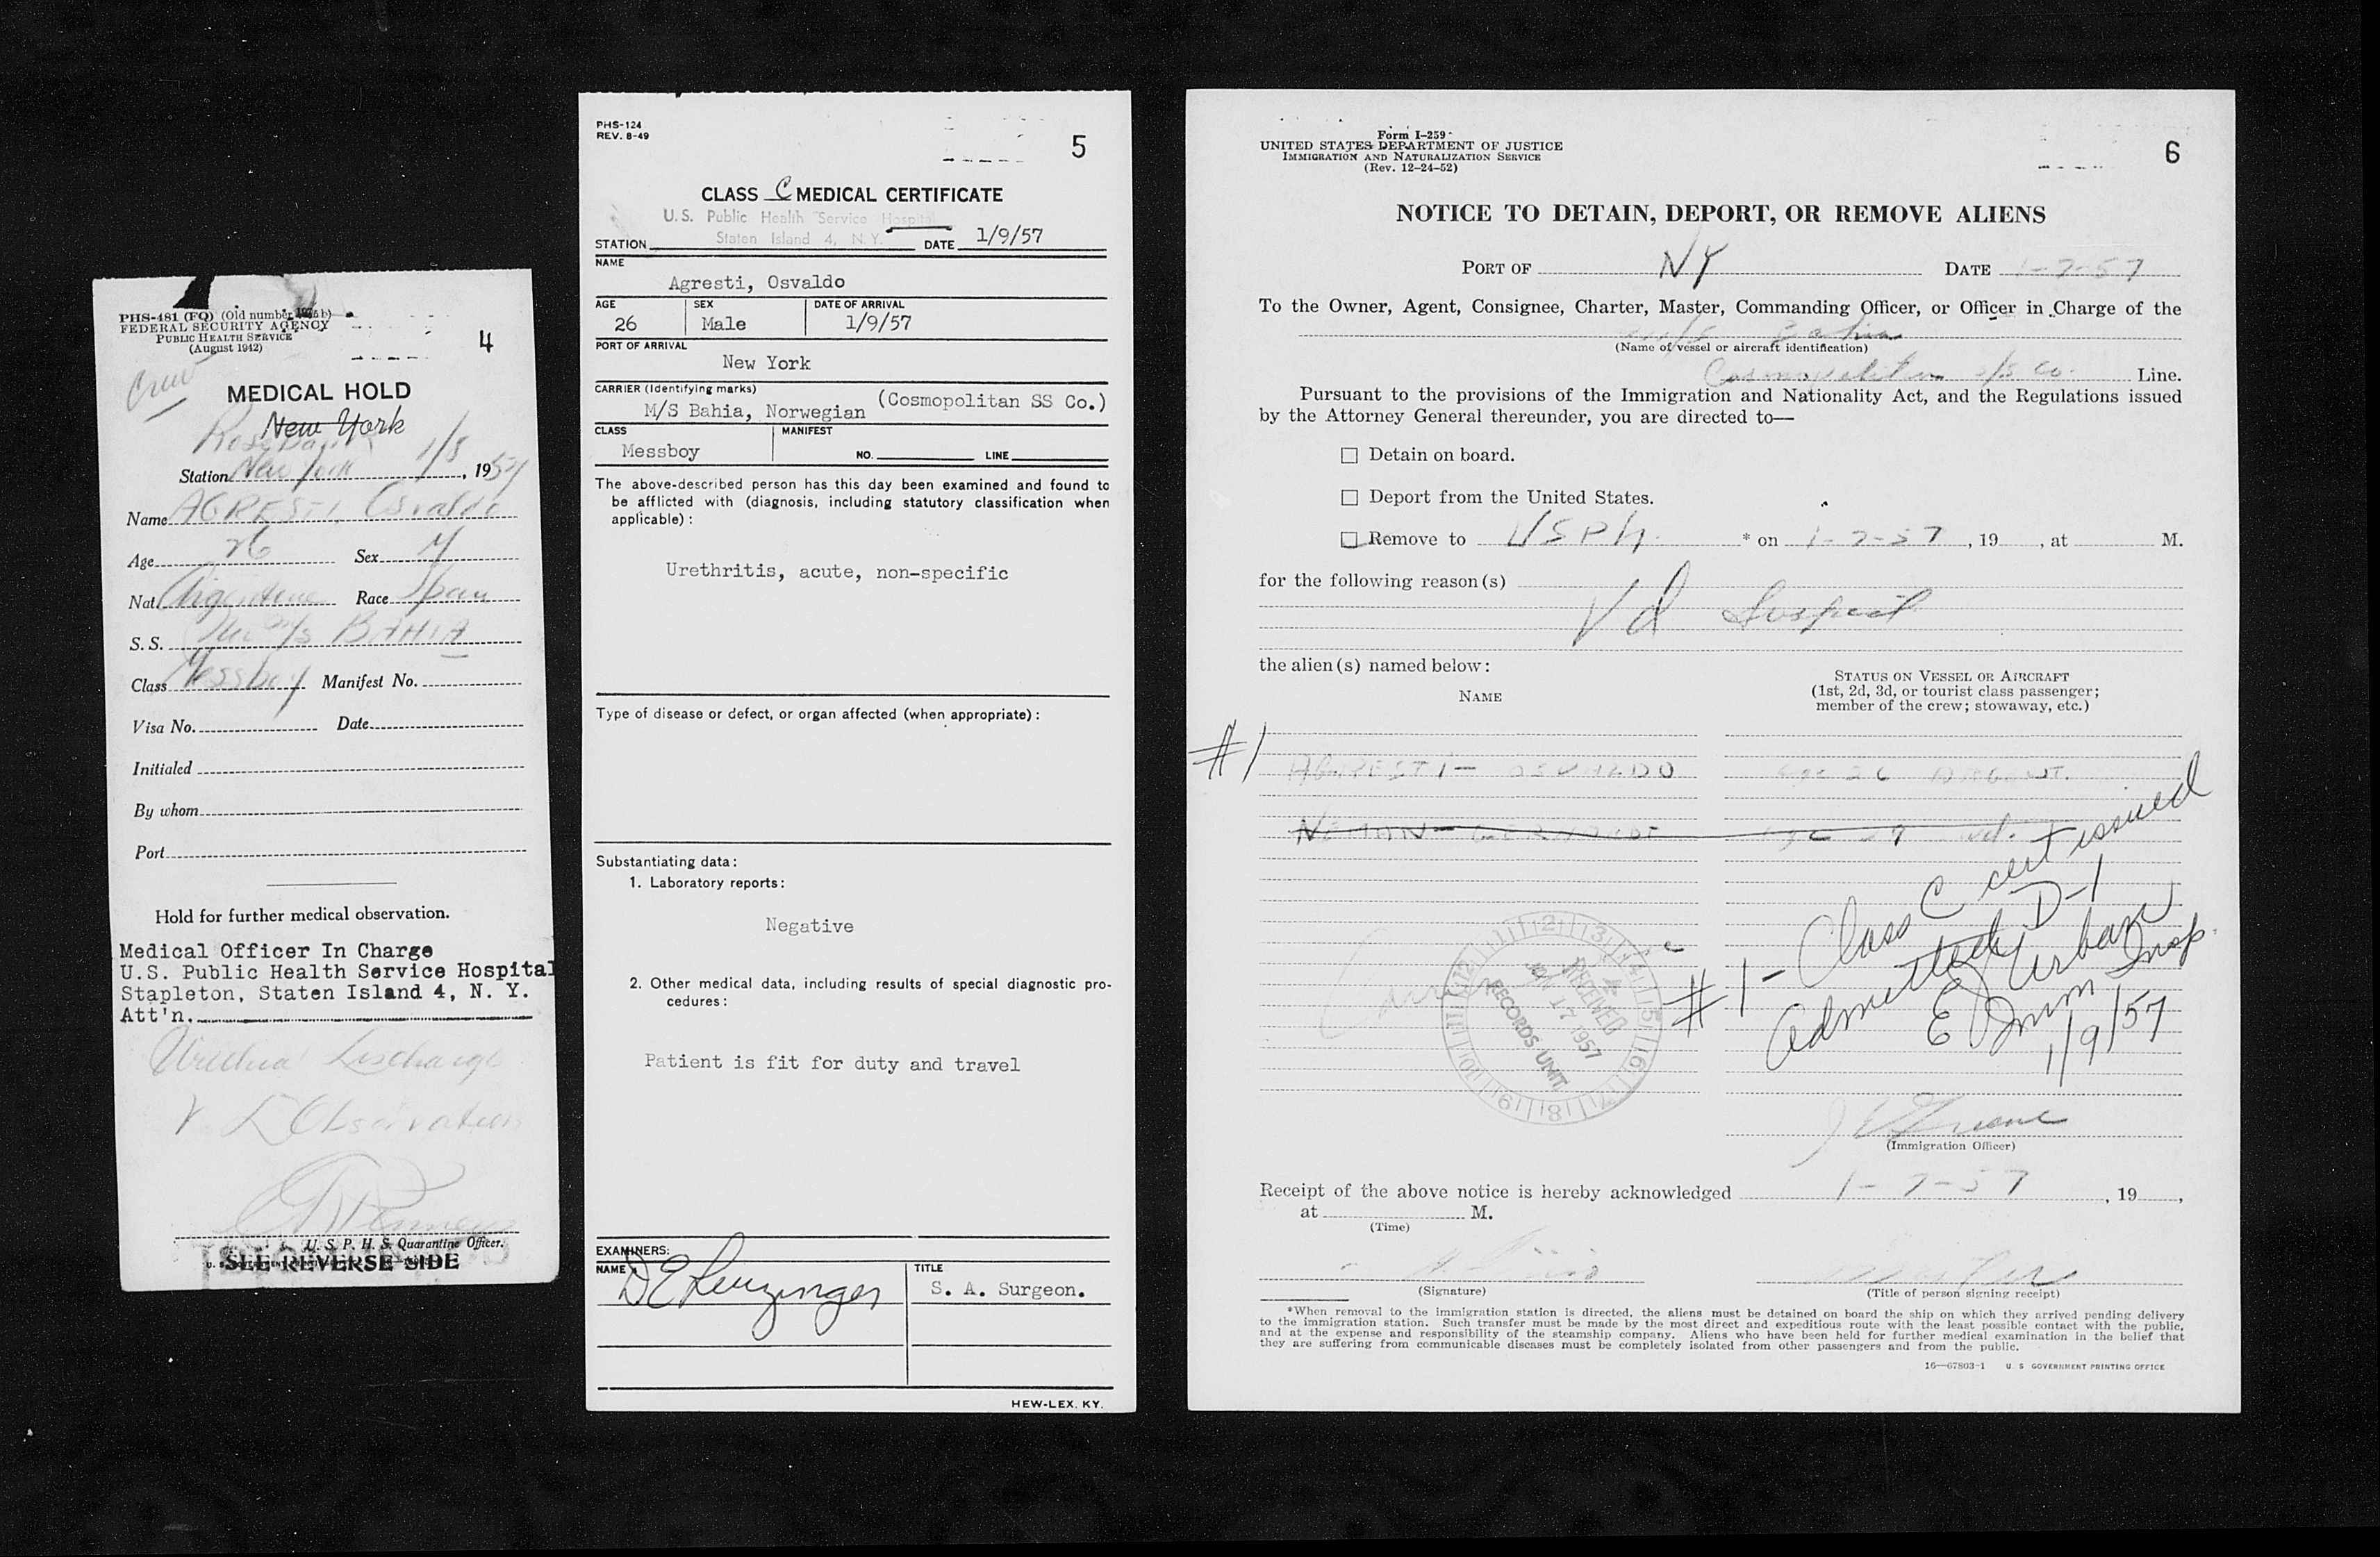 PHS-481 (FQ) (Old number
FEDERAL SECURITY AGENCY
PUBLIC HEALTH SERVICE
(August 1942)
4
Crew
MEDICAL HOLD
New York
Rosebank
Station New York 1/8, 1957
Name AGRESTI, Osvaldo
Age 26 Sex M
Nat. Argentine Race Span
S. S. M/S BAHIA
Class Messboy Manifest No.
Visa No. Date
Initialed
By whom
Port
Hold for further medical observation.
Medical Officer In Charge
U.S. Public Health Service Hospital
Stapleton, Staten Island 4, N. Y.
Att'n.
Urethral Discharge
V D Observation
U. S. P. H. S. Quarantine Officer.
SEE REVERSE SIDE
PHS-124
REV. 8-49
5
CLASS C MEDICAL CERTIFICATE
U.S. Public Health Service Hospital
STATION Staten Island 4, N. Y. DATE 1/9/57
NAME
Agresti, Osvaldo
AGE SEX DATE OF ARRIVAL
26 Male 1/9/57
PORT OF ARRIVAL
New York
CARRIER (Identifying marks)
M/S Bahia, Norwegian (Cosmopolitan SS Co.)
CLASS MANIFEST
Messboy NO. LINE
The above-described person has this day been examined and found to
be afflicted with (diagnosis, including statutory classification when
applicable):
Urethritis, acute, non-specific
Type of disease or defect, or organ affected (when appropriate):
Substantiating data:
1. Laboratory reports:
Negative
2. Other medical data, including results of special diagnostic pro-
cedures:
Patient is fit for duty and travel
EXAMINERS:
NAME TITLE
D E Leuzinger S. A. Surgeon.
HEW-LEX. KY.
Form I-259
UNITED STATES DEPARTMENT OF JUSTICE
IMMIGRATION AND NATURALIZATION SERVICE
(Rev. 12-24-52)
6
NOTICE TO DETAIN, DEPORT, OR REMOVE ALIENS
PORT OF NY DATE 1-7-57
To the Owner, Agent, Consignee, Charter, Master, Commanding Officer, or Officer in Charge of the
Bahia
(Name of vessel or aircraft identification)
Cosmopolitan S/S Co. Line.
Pursuant to the provisions of the Immigration and Nationality Act, and the Regulations issued
by the Attorney General thereunder, you are directed to—
☐ Detain on board.
☐ Deport from the United States.
☐ Remove to USPH * on 1-7-57, 19 , at M.
for the following reason(s)
Vd Suspect
the alien(s) named below:
NAME
STATUS ON VESSEL OR AIRCRAFT
(1st, 2d, 3d, or tourist class passenger;
member of the crew; stowaway, etc.)
#1 AGRESTI- OSVALDO age 26 ARGENT.
#1 - Class C cert issued
Admitted D-1
E J Urban
Imm Insp.
1/9/57
RECEIVED
JAN 17 1957
RECORDS UNIT
(Immigration Officer)
Receipt of the above notice is hereby acknowledged 1-7-57, 19 ,
at M.
(Time)
Master
(Signature) (Title of person signing receipt)
*When removal to the immigration station is directed, the aliens must be detained on board the ship on which they arrived pending delivery
to the immigration station. Such transfer must be made by the most direct and expeditious route with the least possible contact with the public,
and at the expense and responsibility of the steamship company. Aliens who have been held for further medical examination in the belief that
they are suffering from communicable diseases must be completely isolated from other passengers and from the public.
16—67803-1 U. S GOVERNMENT PRINTING OFFICE